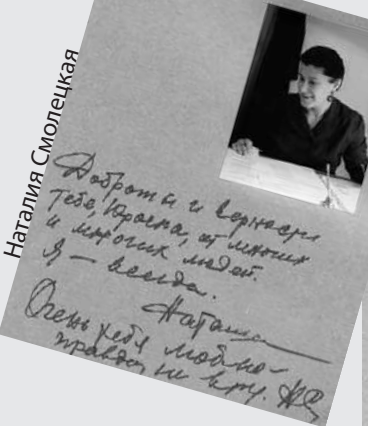 Наталия Смолецкая
Доброты и верности
Тебе, Юрочка, от многих
и многих людей.
Я — всегда.
Наташа
Очень тебя люблю —
правда, не вру. НС